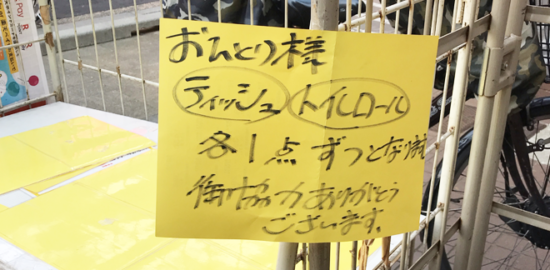 おひとり様
ティッシュ トイレロール
各1点ずつとなります
御協力ありがとう
ございます。
Pay